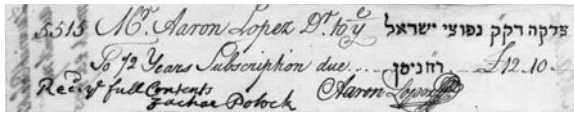 5515 Mr. Aaron Lopez Dr. to ye צדקה דקק נפוצי ישראל
To 1/2 Years Subscription due ... רח ניסן ... £12.10.
Rec'd ye full Contents
Zachar Polock Aaron Lopez